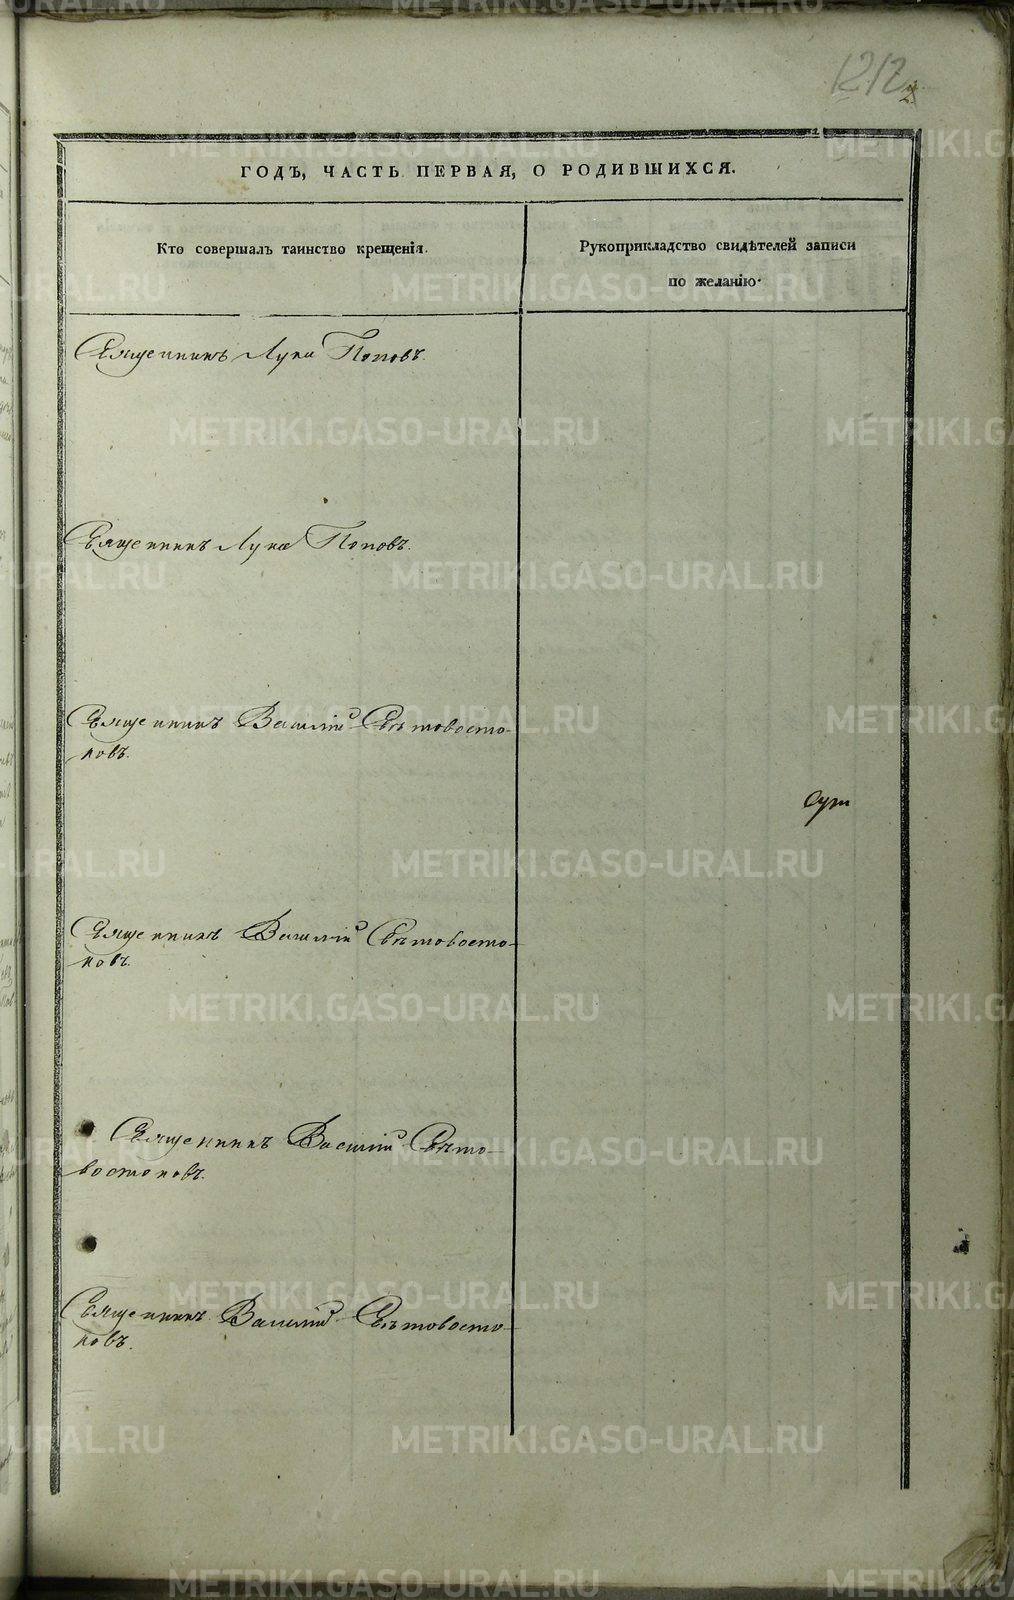 1212
ГОДЪ, ЧАСТЬ ПЕРВАЯ, О РОДИВШИХСЯ.
Кто совершалъ таинство крещенія.
Рукоприкладство свидѣтелей записи
по желанію.
Священникъ Лука Поповъ.
Священникъ Лука Поповъ.
Священникъ Василій Свѣтовосто-
ковъ.
Священникъ Василій Свѣтовосто-
ковъ.
Священникъ Василій Свѣто-
востоковъ.
Священникъ Василій Свѣтовосто-
ковъ.
METRIKI.GASO-URAL.RU